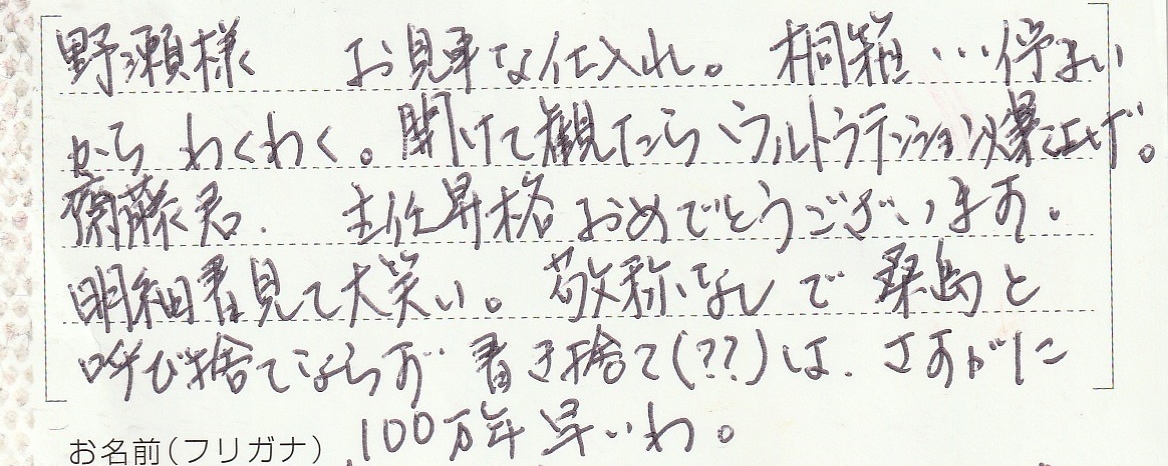 野瀬様 お見事な仕入れ。桐箱…佇まい
から わくわく。開けて観たら、ウルトラテンション爆上げ。
齋藤君. 主任昇格おめでとうございます。
明細書見て大笑い。敬称なしで 桑島と
呼び捨てならず 書き捨て(??)は、さすがに
100万年早いわ。
お名前(フリガナ)